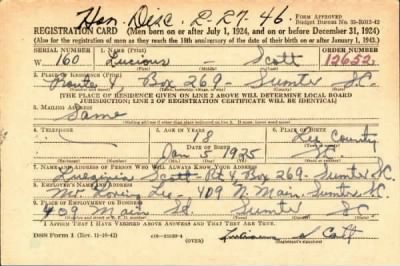 Hon. Disc. 2-27-46
FORM APPROVED
REGISTRATION CARD (Men born on or after July 1, 1924, and on or before December 31, 1924)
(Also for the registration of men as they reach the 18th anniversary of the date of their birth on or after January 1, 1943.)
SERIAL NUMBER 1. NAME (Print) ORDER NUMBER
W 160 Lucious - Scott 12652
2. PLACE OF RESIDENCE (Print)
Route 4 Box 269 - Sumter SC.
(THE PLACE OF RESIDENCE GIVEN ON LINE 2 ABOVE WILL DETERMINE LOCAL BOARD
JURISDICTION; LINE 2 OF REGISTRATION CERTIFICATE WILL BE IDENTICAL)
3. MAILING ADDRESS
Same
4. TELEPHONE 5. AGE IN YEARS 6. PLACE OF BIRTH
18 Lee County
DATE OF BIRTH
Jan 5 1925 SC
7. NAME AND ADDRESS OF PERSON WHO WILL ALWAYS KNOW YOUR ADDRESS
Scott - Rt 4, Box 269 - Sumter SC.
8. EMPLOYER'S NAME AND ADDRESS
Mr. Loring Lee - 409 N. Main, Sumter SC.
9. PLACE OF EMPLOYMENT OR BUSINESS
409 Main St. Sumter SC
I AFFIRM THAT I HAVE VERIFIED ABOVE ANSWERS AND THAT THEY ARE TRUE.
DSS Form 1 (Rev. 11-16-42) (OVER)